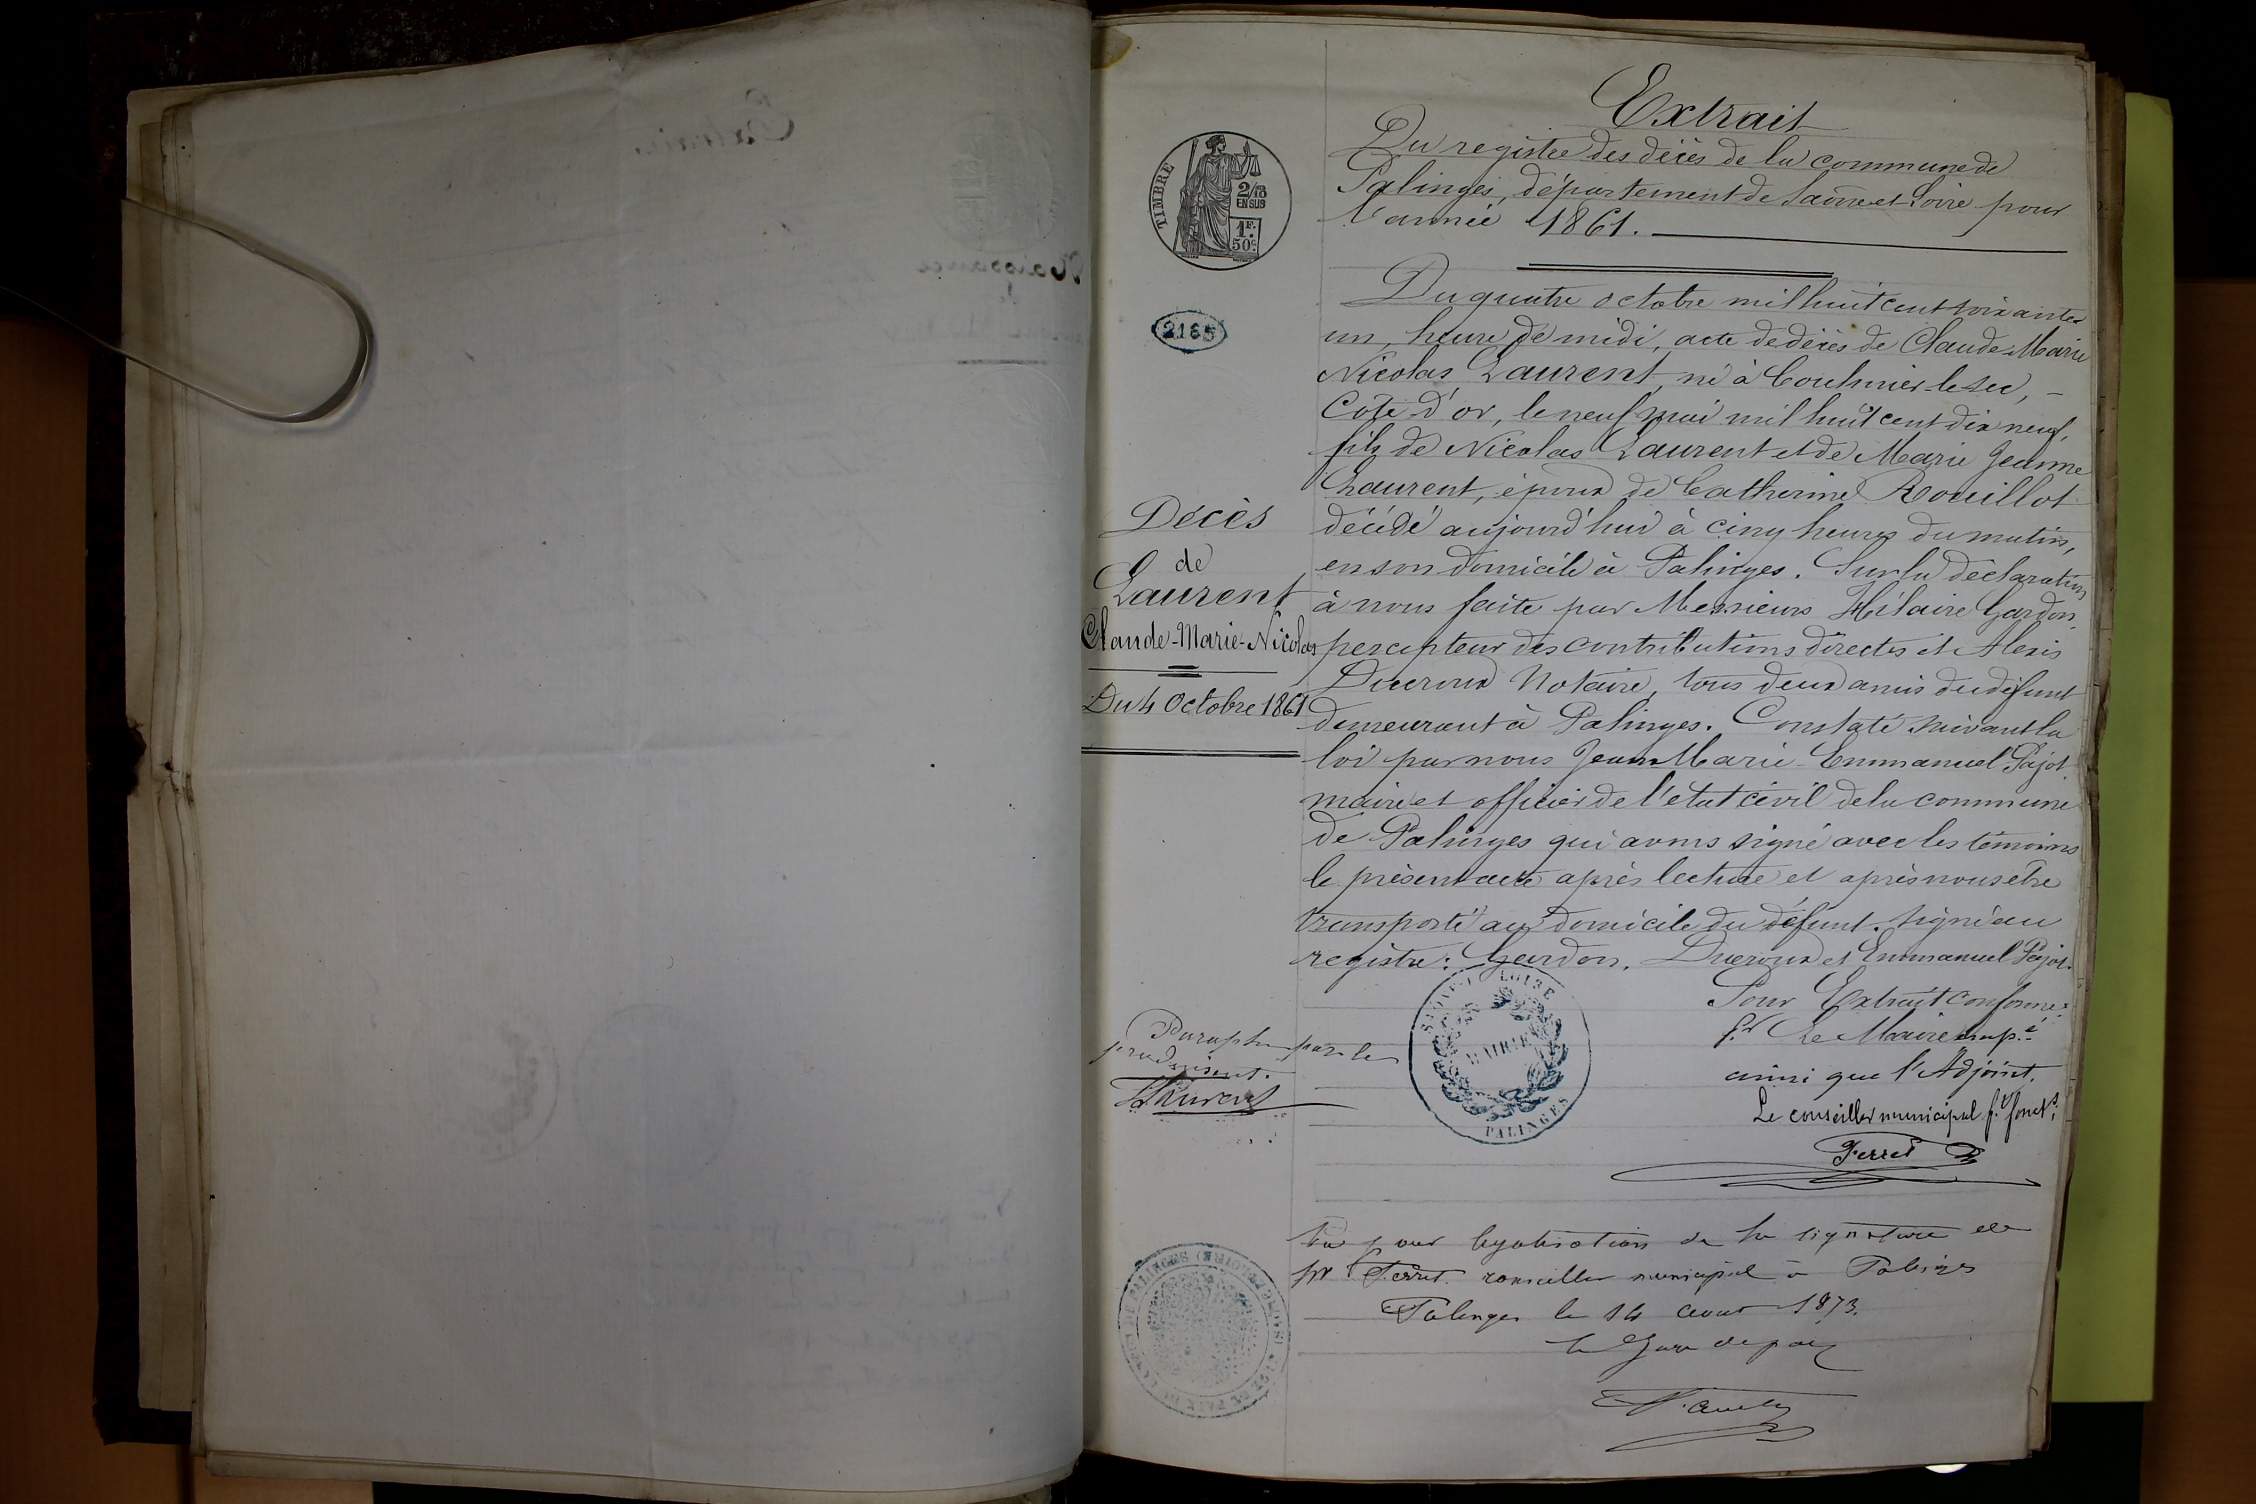 Extrait
Du registre des décès de la commune de
Palinges, département de Saône et Loire pour
l'année 1861.
TIMBRE
2/10
EN SUS
1F.
50c
2185
Du quatre octobre mil huit cent soixante
un, heure de midi, acte de décès de Claude Marie
Nicolas Laurent, né à Coulmier-le-sec,
Côte d'or, le neuf mai mil huit cent dix neuf,
fils de Nicolas Laurent et de Marie Jeanne
Laurent, époux de Catherine Rouillot
décédé aujourd'hui à cinq heures du matin,
en son domicile à Palinges. Sur la déclaration
à nous faite par Messieurs Hilaire Gardon
percepteur des contributions directes et Alexis
Ducroux Notaire, tous deux amis du défunt
demeurant à Palinges. Constaté suivant la
loi par nous Jean Marie Emmanuel Pajot
maire et officier de l'état civil de la commune
de Palinges qui avons signé avec les témoins
le présent acte après lecture et après nous être
transporté au domicile du défunt. Signé au
registre: Gardon, Ducroux et Emmanuel Pajot.
Décès
de
Laurent
Claude-Marie-Nicolas
Du 4 Octobre 1861
Pour Extrait conforme:
pr Le Maire emp.é
ainsi que l'Adjoint.
Le conseiller municipal f.t fonct.s
Ferret
Paraphé par le
produisant.
Laurent
SAONE-ET-LOIRE
MAIRIE
PALINGES
Vu pour légalisation de la signature de
Mr Ferret conseiller municipal à Palinges
Palinges le 14 Aout 1873.
le Juge de paix